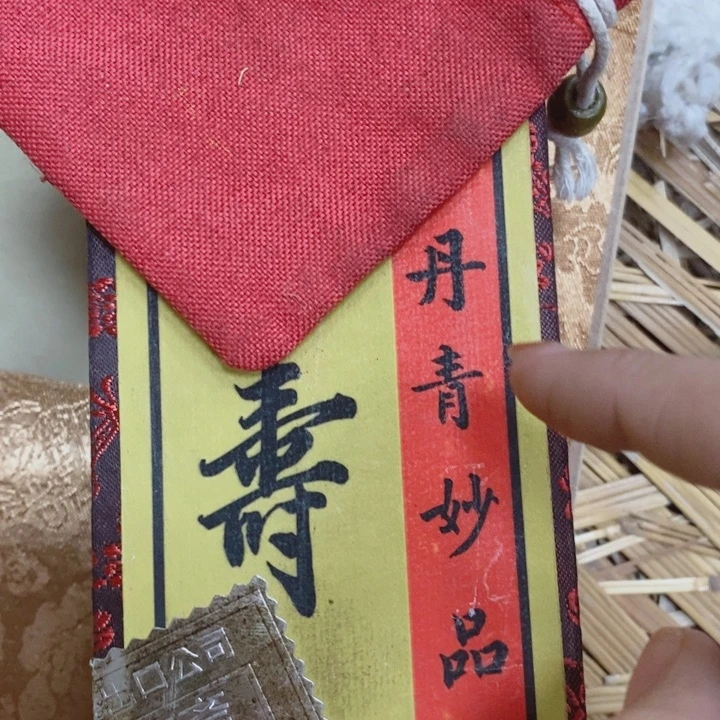 丹青妙品
壽
口公司